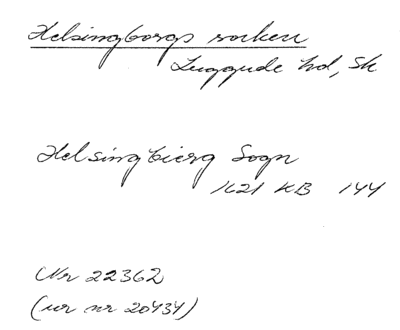 Helsingborgs socken
Luggude hd, Sk
Helsingbierg Sogn
1621 KB 144
Nr 22362
(ur nr 20434)